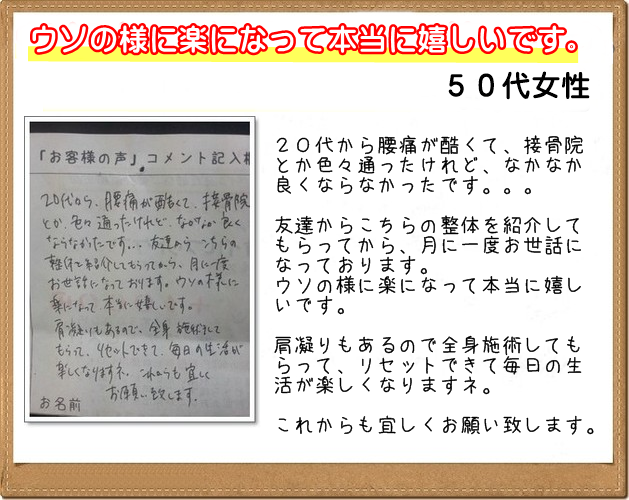 ウソの様に楽になって本当に嬉しいです。
５０代女性
「お客様の声」コメント記入欄
20代から、腰痛が酷くて、接骨院
とか、色々通ったけれど、なかなか良く
ならなかったです... 友達から こちらの
整体を紹介してもらってから、月に一度
お世話になっております。ウソの様に
楽になって、本当に嬉しいです。
肩凝りもあるので、全身施術して
もらって、リセットできて、毎日の生活が
楽しくなりますネ。これからも宜しく
お願い致します。
お名前
２０代から腰痛が酷くて、接骨院
とか色々通ったけれど、なかなか
良くならなかったです。。。
友達からこちらの整体を紹介して
もらってから、月に一度お世話に
なっております。
ウソの様に楽になって本当に嬉し
いです。
肩凝りもあるので全身施術しても
らって、リセットできて毎日の生
活が楽しくなりますネ。
これからも宜しくお願い致します。